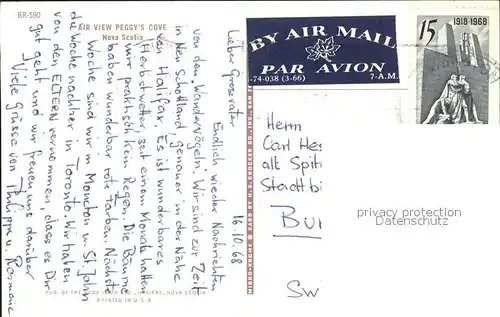 BR-590
AIR VIEW PEGGY'S COVE
Nova Scotia
16.10.68
Lieber Grossvater
Endlich wieder Nachrichten
von den "Wandervögeln". Wir sind zur Zeit
in Neu Schottland, genauer in der Nähe
von Halifax. Es ist wunderbares
Herbstwetter, seit einem Monate hatten
wir praktisch kein Regen. Die Bäume
haben wunderbar rote Farben. Nächste
Woche sind wir in Moncton u. St. John
die Woche nachher in Toronto. Wir haben
von den ELTERN vernommen, dass es Dir
gut geht und wir freuen uns darüber
Viele Grüsse von Philippe u.
PRINTED IN U.S.A.
BY AIR MAIL
PAR AVION
-74-038 (3-66) 7-A.M.
15 1918-1968
Herrn
Carl He
alt Spit
Stadtbi
Bu
SW
privacy protection
Datenschutz